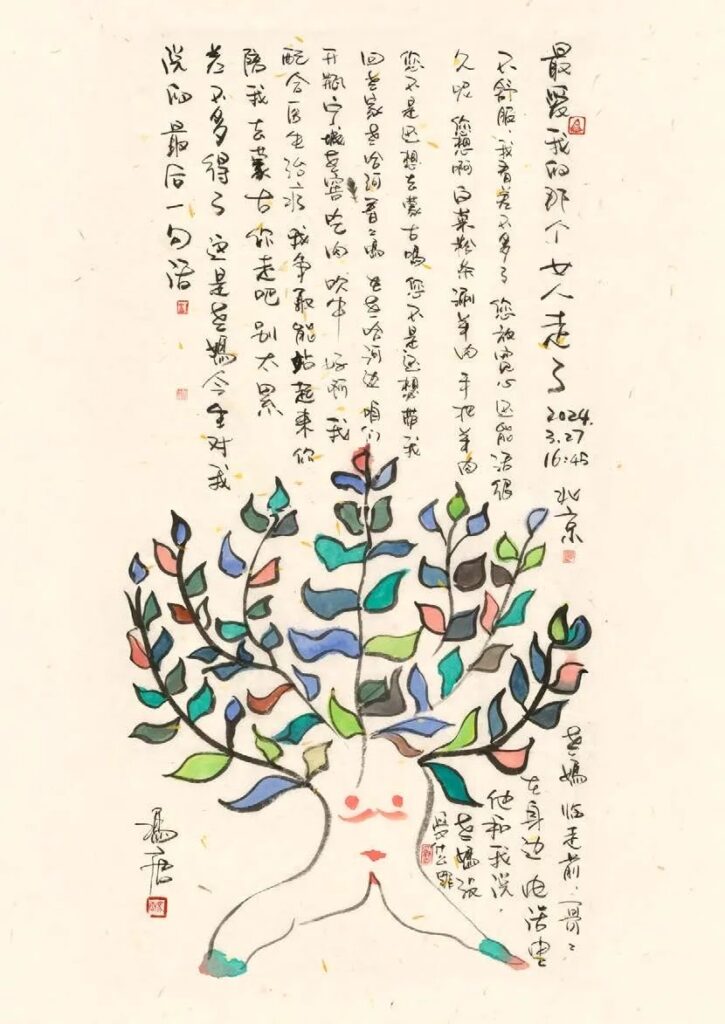 最爱我的那个女人走了
2024.
3.27
16:45
北京
不舒服，我看差不多了 您放宽心 还能活很
久呢 您想啊 白菜粉条涮羊肉 手把羊肉
您不是还想去蒙古吗 您不是还想带我
回老家老哈河看看吗 在老哈河边 咱们
开瓶宁城老窖 吃肉 吹牛 好啊 我
配合医生治疗 我争取能站起来 你
陪我去蒙古 你走吧 别太累
差不多得了 这是老妈今生对我
说的最后一句话
老妈临走前，哥哥
在身边 电话里
他和我说，
老妈说
冯唐